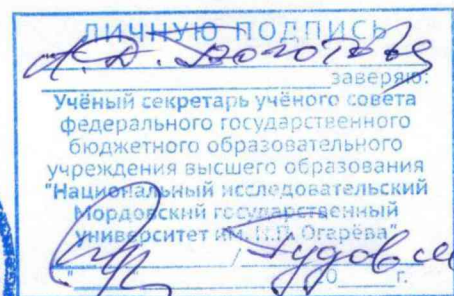 ЛИЧНУЮ ПОДПИСЬ
А.Д.
заверяю:
Учёный секретарь учёного совета
федерального государственного
бюджетного образовательного
учреждения высшего образования
"Национальный исследовательский
Мордовский государственный
университет им. Н.П. Огарёва"
/
" 20 г.